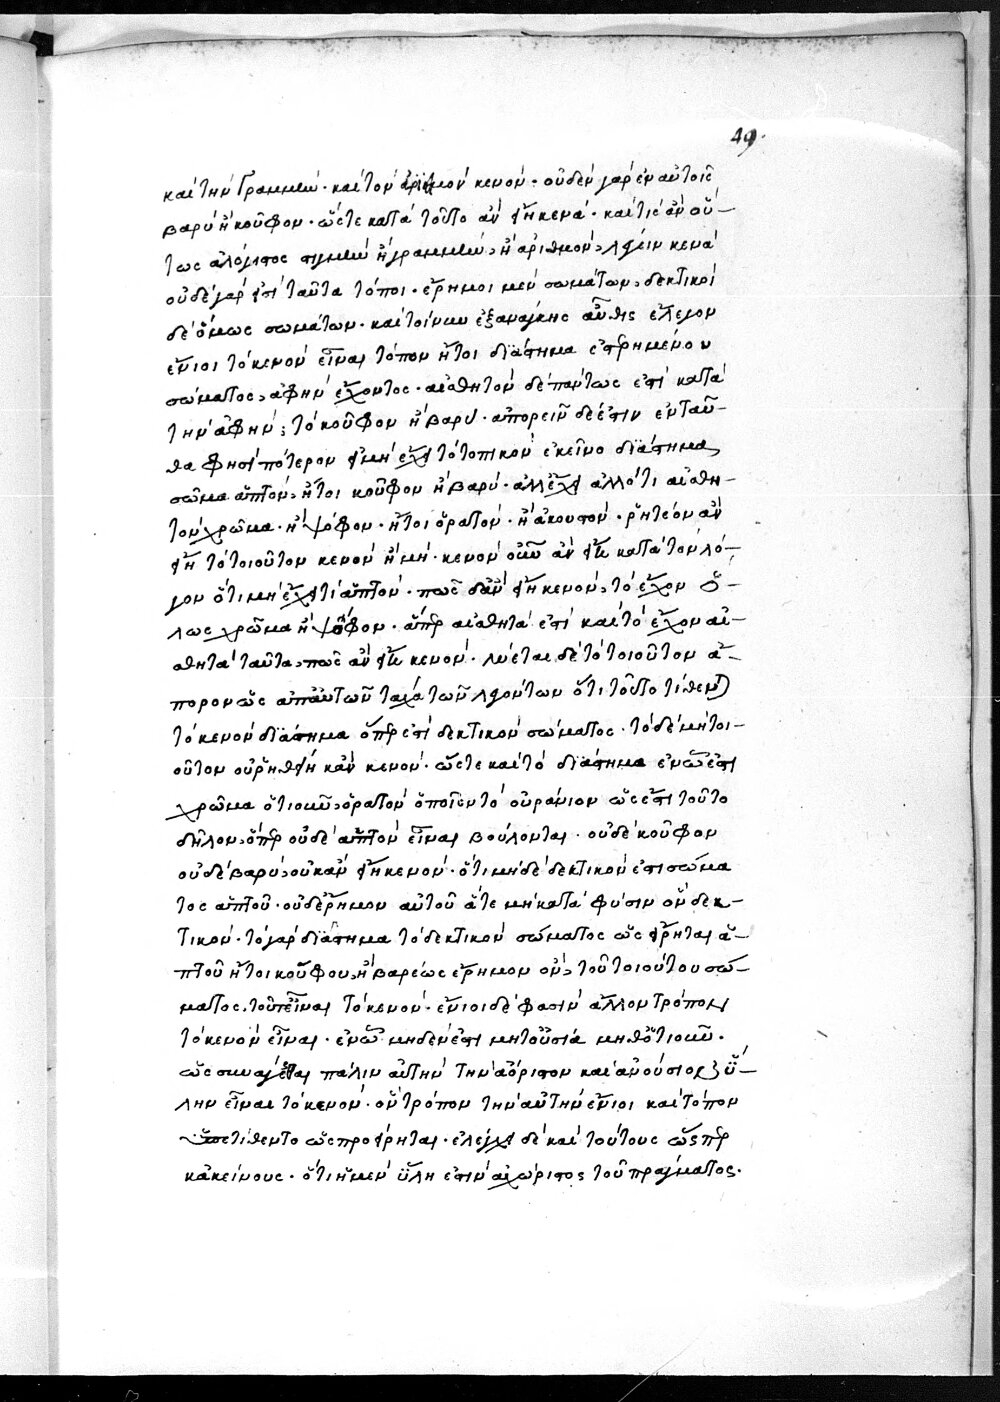 49.
καὶ τὴν γραμμὴν· καὶ τὸν ἀριθμὸν κενόν· οὐδὲν γὰρ ἐν αὐτοῖς
βαρὺ ἢ κοῦφον· ὥστε κατὰ τοῦτο ἂν εἴη κενά· καὶ τίς ἂν οὕ-
τως ἀλόγιστος στιγμὴν ἢ γραμμὴν, ἢ ἀριθμὸν, λέγειν κενά
οὐδὲ γάρ εἰσι ταῦτα τόποι· ἔρημοι μὲν σωμάτων, δεκτικοὶ
δὲ ὅμως σωμάτων· καὶ τοίνυν ἐξανάγκης αὖθις ἔλεγον
ἔνιοι τὸ κενὸν εἶναι τόπον ἤτοι διάστημα ἐστερημένον
σώματος, ἁφὴν ἔχοντος· αἰσθητὸν δὲ πάντως ἐστὶ κατὰ
τὴν ἁφὴν, τὸ κοῦφον ἢ βαρύ· ἀπορεῖν δέ ἐστιν ἐνταῦ-
θα φησὶ πότερον εἰ μὴ ἔχει τὸ τοπικὸν ἐκεῖνο διάστημα
σῶμα ἁπτὸν, ἤτοι κοῦφον ἢ βαρύ· ἀλλ' ἔχει ἄλλό τι αἰσθη-
τὸν χρῶμα· ἢ ψόφον· ἤτοι ὁρατὸν· ἢ ἀκουστόν· ῥητέον ἂν
εἴη τὸ τοιοῦτον κενὸν ἢ μή· κενὸν οὖν ἂν εἴη κατὰ τὸν λό-
γον ὅτι μὴ ἔχει τι ἁπτόν· πῶς δ' ἂν εἴη κενὸν, τὸ ἔχον ὅ-
λως χρῶμα ἢ ψόφον· ἅπερ αἰσθητά ἐστι καὶ τὸ ἔχον αἰ-
σθητὰ ταῦτα, πῶς ἂν εἴη κενόν· λύεται δὲ τὸ τοιοῦτον ἄ-
πορον ὡς ἀπ' αὐτῶν τάχα τῶν λεγόντων ὅτι τοῦτο τίθενται
τὸ κενὸν διάστημα ὅπερ ἐστὶ δεκτικὸν σώματος· τὸ δὲ μὴ τοι-
οῦτον οὐ ῥηθείη κἂν κενόν· ὥστε καὶ τὸ διάστημα ἐν ᾧ ἐστι
χρῶμα ὁτιοῦν, ὁρατὸν ὁποῖον τὸ οὐράνιον ὥς ἐστι τοῦτο
δῆλον, ὅπερ οὐδὲ ἁπτὸν εἶναι βούλονται· οὐδὲ κοῦφον
οὐδὲ βαρὺ, οὐκ ἂν εἴη κενόν· ὅτι μὴ δὲ δεκτικὸν ἐστι σώμα
τος ἁπτοῦ· οὐδ' ἔρημον αὐτοῦ ἅτε μὴ κατὰ φύσιν ὂν δεκ-
τικόν· τὸ γὰρ διάστημα τὸ δεκτικὸν σώματος ὡς εἴρηται ἁ-
πτοῦ ἤτοι κούφου, ἢ βαρέως ἔρημον ὂν, τοῦ τοιούτου σώ-
ματος, τοῦτ' εἶναι τὸ κενόν· ἔνιοι δὲ φασὶν ἄλλον τρόπον
τὸ κενὸν εἶναι· ἐν ᾧ μηδέν ἐστι μήτ' οὐσία μηθ' ὁτιοῦν·
ὡς συνάγεται πάλιν αὐτὴν τὴν ἀόριστον καὶ ἀνούσιον ὕ-
λην εἶναι τὸ κενόν· ὃν τρόπον τὴν αὐτὴν ἔνιοι καὶ τόπον
ἐτίθεντο ὡς προείρηται· ἐλέγχει δὲ καὶ τούτους ὥσπερ
κἀκείνους· ὅτι ἡ μὲν ὕλη ἐστὶν ἀχώριστος τοῦ πράγματος.